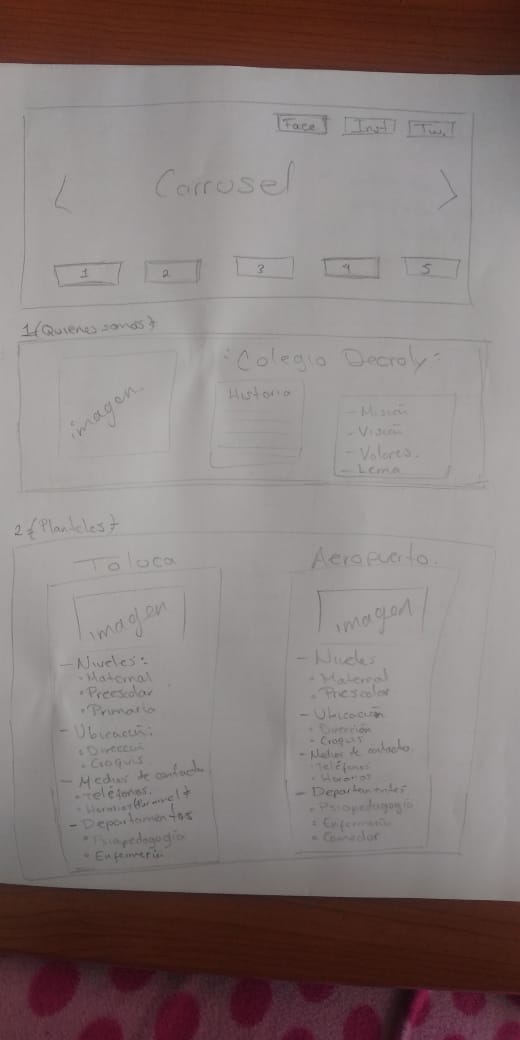 Face Inst Tw.
< Carrusel >
1 2 3 4 5
1{Quienes somos}
imagen.
:Colegio Decroly:
Historia
- Misión
- Visión
- Valores.
- Lema
2{Planteles}
Toluca
imagen
- Niveles:
• Maternal
• Preescolar
• Primaria
- Ubicación:
• Dirección
• Croquis
- Medios de contacto
• Teléfonos.
- Departamentos
• Psicopedagogía
• Enfermería
Aeropuerto.
imagen
- Niveles
• Maternal
• Preescolar
- Ubicación
• Dirección
• Croquis
- Medios de contacto
• Teléfonos
• Horarios
- Departamentos
• Psicopedagogía
• Enfermería
• Comedor